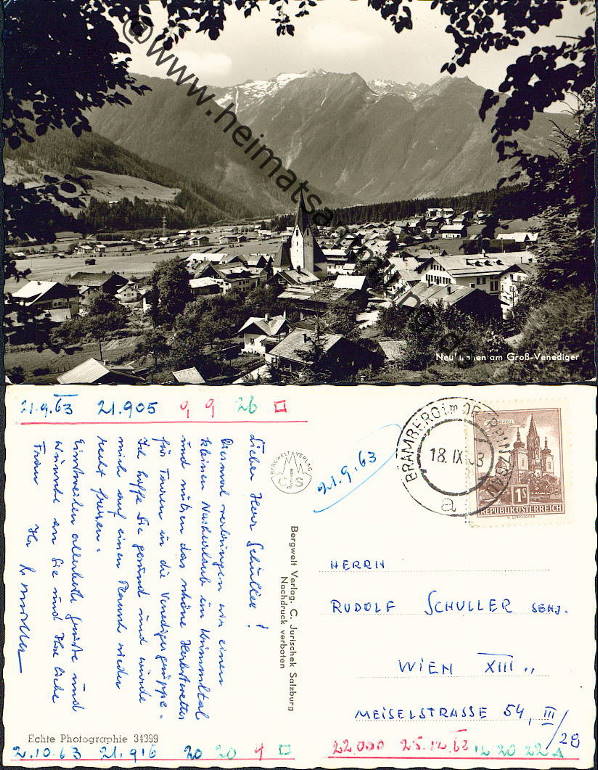 © www.heimatsammlung.de
Neukirchen am Groß-Venediger
21.9.63 21.905 9 9 26
Lieber Herr Schuller!
Diesmal verbringen wir einen
kleinen Nachurlaub im Krimmltal
und nützen das schöne Herbstwetter
für Touren in die Venedigergruppe.
Ich hoffe Sie gesund und würde
mich auf einen Besuch wieder
recht freuen.
Einstweilen allerbeste Grüße und
Wünsche an Sie und Ihre liebe
Frau Ihr
BERGWELTVERLAG
CJS
Bergwelt Verlag. C. Jurischek Salzburg
Nachdruck verboten
21.9.63
BRAMBERG im OBERPINZGAU
18.IX.63
a
1S
REPUBLIK ÖSTERREICH
HERRN
RUDOLF SCHULLER SENJ.
WIEN XIII.,
MEISELSTRASSE 54, III/28
Echte Photographie 34399
2.10.63 21.916 20 20 4
22.000 25.12.63 12 20 22